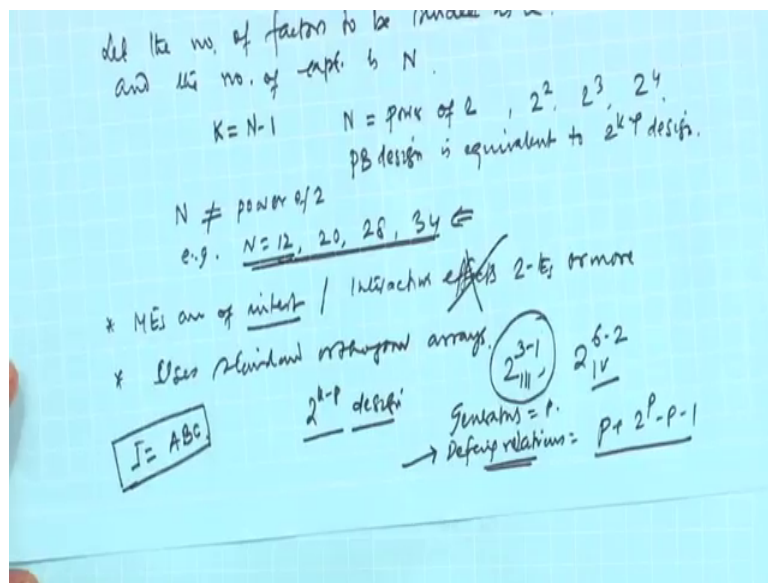 Let the no. of factors to be
and the no. of expt. is N.
K = N-1 N = power of 2, 2², 2³, 2⁴.
PB design is equivalent to 2^(k-p) design.
N ≠ power of 2
e.g. N = 12, 20, 28, 34 ⇐
* MEs are of interest / Interaction effects 2- or more
* Uses standard orthogonal arrays. 2_III^(3-1), 2_IV^(6-2)
2^(k-p) design
Generators = P.
I = ABC
→ Defining relations = p + 2^p - p - 1